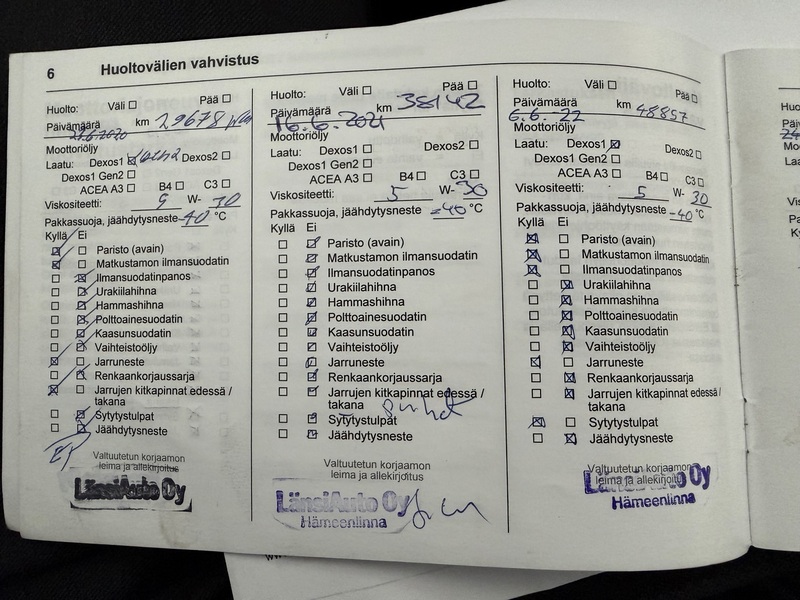 6 Huoltovälien vahvistus
Huolto: Väli Pää
Päivämäärä km 29678
Moottoriöljy
Laatu: Dexos1 Dexos2
Dexos1 Gen2
ACEA A3 B4 C3
Viskositeetti: 5 W- 30
Pakkassuoja, jäähdytysneste -40 °C
Kyllä Ei
Paristo (avain)
Matkustamon ilmansuodatin
Ilmansuodatinpanos
Urakiilahihna
Hammashihna
Polttoainesuodatin
Kaasunsuodatin
Vaihteistoöljy
Jarruneste
Renkaankorjaussarja
Jarrujen kitkapinnat edessä /
takana
Sytytystulpat
Jäähdytysneste
Valtuutetun korjaamon
leima ja allekirjoitus
LänsiAuto Oy
Huolto: Väli Pää
Päivämäärä km 38142
16.6.2021
Moottoriöljy
Laatu: Dexos1 Dexos2
Dexos1 Gen2
ACEA A3 B4 C3
Viskositeetti: 5 W- 30
Pakkassuoja, jäähdytysneste -40 °C
Kyllä Ei
Paristo (avain)
Matkustamon ilmansuodatin
Ilmansuodatinpanos
Urakiilahihna
Hammashihna
Polttoainesuodatin
Kaasunsuodatin
Vaihteistoöljy
Jarruneste
Renkaankorjaussarja
Jarrujen kitkapinnat edessä /
takana
Sytytystulpat
Jäähdytysneste
Valtuutetun korjaamon
leima ja allekirjoitus
LänsiAuto Oy
Hämeenlinna
Huolto: Väli Pää
Päivämäärä km 48857
6.6.-22
Moottoriöljy
Laatu: Dexos1 Dexos2
Dexos1 Gen2
ACEA A3 B4 C3
Viskositeetti: 5 W- 30
Pakkassuoja, jäähdytysneste -40 °C
Kyllä Ei
Paristo (avain)
Matkustamon ilmansuodatin
Ilmansuodatinpanos
Urakiilahihna
Hammashihna
Polttoainesuodatin
Kaasunsuodatin
Vaihteistoöljy
Jarruneste
Renkaankorjaussarja
Jarrujen kitkapinnat edessä /
takana
Sytytystulpat
Jäähdytysneste
Valtuutetun korjaamon
leima ja allekirjoitus
LänsiAuto Oy
Hämeenlinna